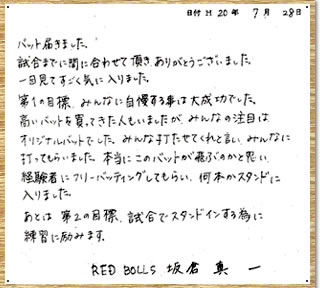 日付 H 20年 7月 28日
バット届きました。
試合までに間に合わせて頂き、ありがとうございました。
一目見てすごく気に入りました。
第1の目標、みんなに自慢する事は大成功でした。
高いバットを買ってきた人もいましたが、みんなの注目は
オリジナルバットでした。みんな打たせてくれと言い、みんなに
打ってもらいました。本当にこのバットが飛ぶのかと思い、
経験者にフリーバッティングしてもらい、何本かスタンドに
入りました。
あとは 第2の目標、試合でスタンドインする為に
練習に励みます。
RED BOLLS 坂倉 真一